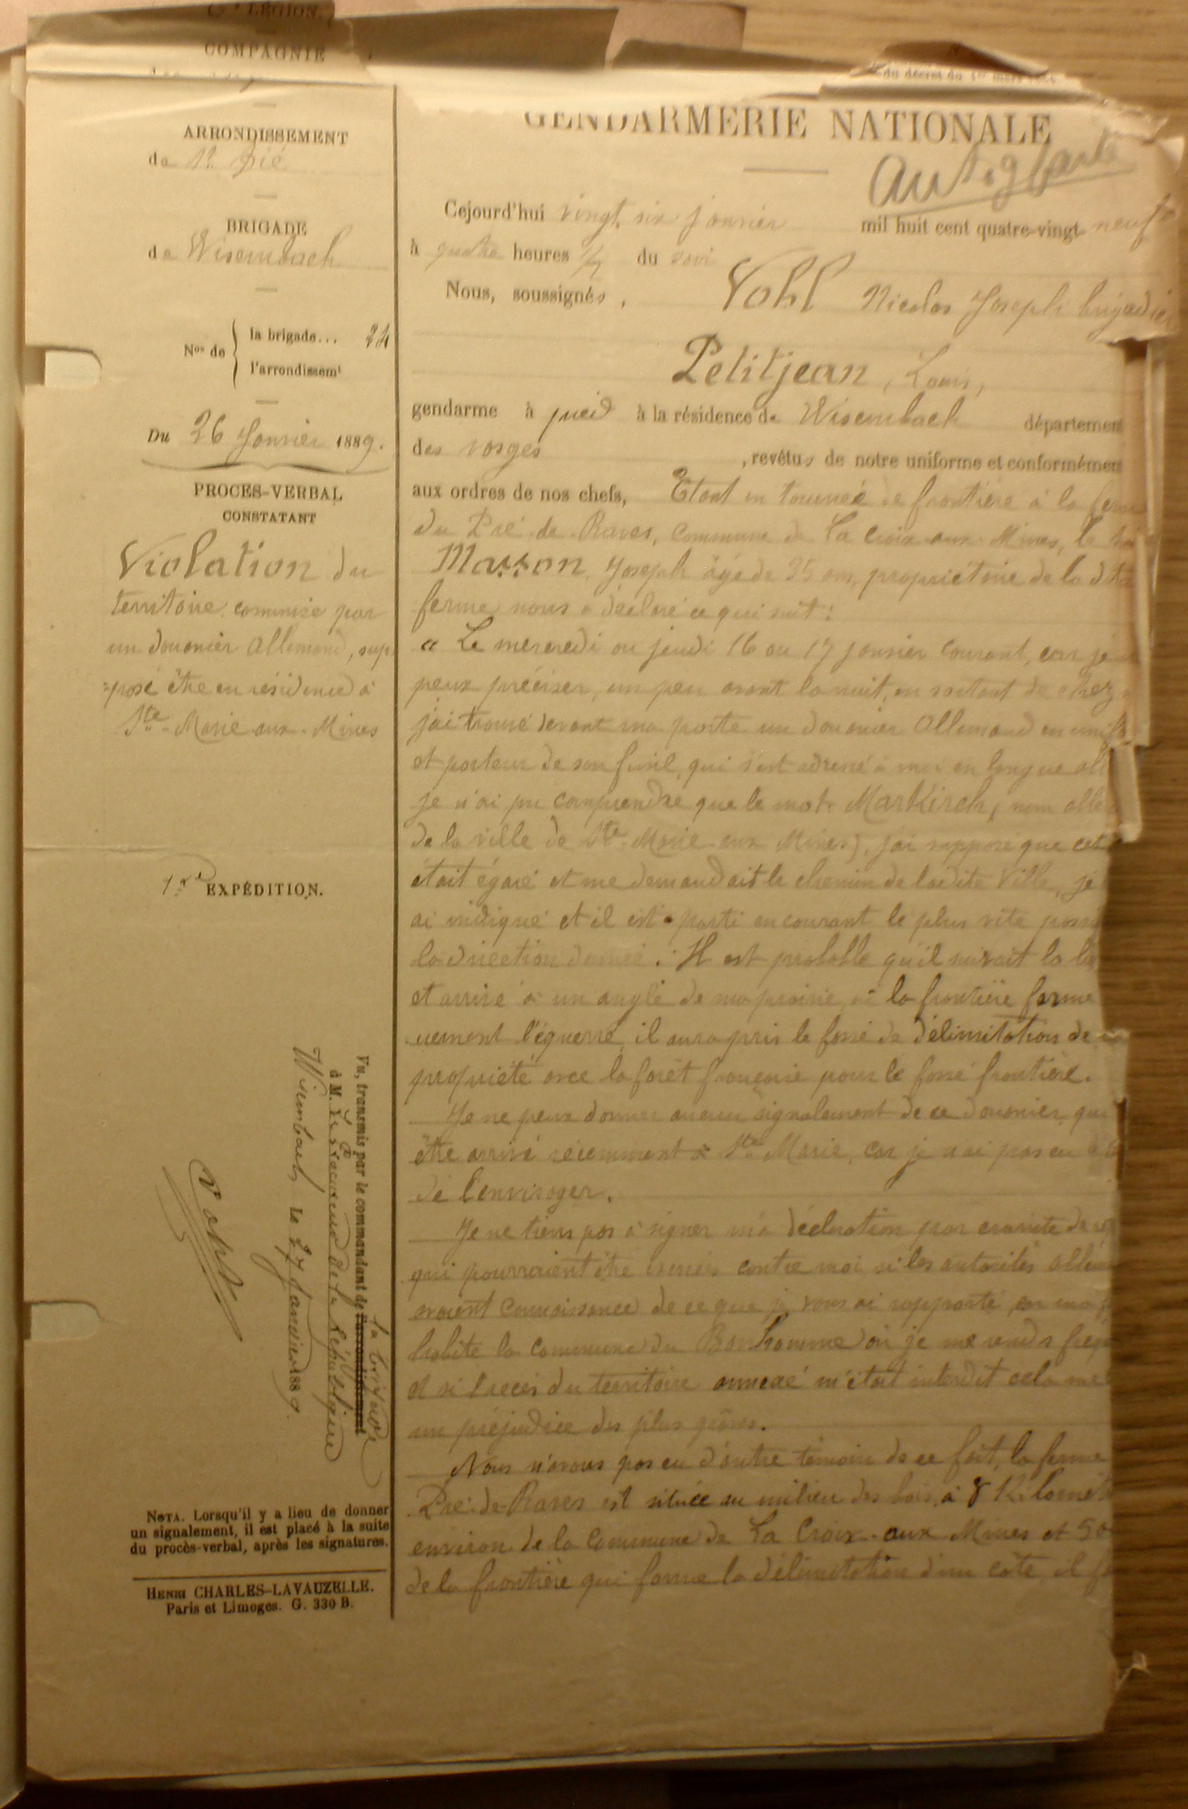 6e LÉGION.
COMPAGNIE
du décret du 1er mars
ARRONDISSEMENT
de St Dié
BRIGADE
de Wisembach
Nos de { la brigade... 24
l'arrondissemt
Du 26 Janvier 1889.
PROCÈS-VERBAL
CONSTATANT
Violation du
territoire commise par
un douanier Allemand, sup
posé être en résidence à
Ste-Marie-aux-Mines
1re EXPÉDITION.
Vu, transmis par le commandant de l'arrondissement la brigade
à M. le Procureur de la République
Wisembach le 27 Janvier 1889.
Vohl
NOTA. Lorsqu'il y a lieu de donner
un signalement, il est placé à la suite
du procès-verbal, après les signatures.
HENRI CHARLES-LAVAUZELLE.
Paris et Limoges. G. 330 B.
GENDARMERIE NATIONALE
Cejourd'hui vingt six janvier mil huit cent quatre-vingt-neuf
à quatre heures ½ du soir
Nous, soussignés, Vohl Nicolas Joseph brigadier
Petitjean, Louis,
gendarme à pied à la résidence de Wisembach départemen
des vosges, revêtus de notre uniforme et conformémen
aux ordres de nos chefs, Etant en tournée de frontière à la ferme
du Pré de Raves, commune de La Croix-aux-Mines, le
Masson, Joseph âgé de 35 ans, propriétaire de la dite
ferme nous a déclaré ce qui suit:
« Le mercredi ou jeudi 16 ou 17 janvier courant, car je
peux préciser, un peu avant la nuit, en sortant de chez
j'ai trouvé devant ma porte un douanier Allemand en unif
et porteur de son fusil, qui s'est adressé à moi en langue all
je n'ai pu comprendre que le mot Markirch, (nom alle
de la ville de Ste-Marie-aux-Mines), j'ai supposé que cet
était égaré et me demandait le chemin de ladite Ville, je
ai indiqué et il est parti en courant le plus vite poss
la direction donnée. Il est probable qu'il suivait la
et arrivé à un angle de ma prairie, où la frontière forme
uement l'équerre, il aura pris le fossé de délimitation de
propriété avec la forêt française pour le fossé frontière.
Je ne peux donner aucun signalement de ce douanier, qui
être arrivé récemment à Ste Marie, car je n'ai pas eu
de l'envisager.
Je ne tiens pas à signer ma déclaration par crainte de
qui pourraient être exercées contre moi si les autorités allem
avaient connaissance de ce que je vous ai rapporté, car ma
habite la commune du Bonhomme où je me rends fréq
et si l'accès du territoire annexé m'était interdit cela me
un préjudice des plus graves.
Nous n'avons pas eu d'autre témoin de ce fait, la ferme
Pré-de-Raves est située au milieu des bois, à 8 Kilomèt
environ de la Commune de La Croix-aux-Mines et 50
de la frontière qui forme la délimitation d'un côté, il